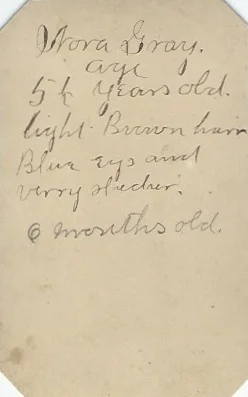 Nora Gray.
age
5½ years old.
light Brown hair
Blue eys and
verry slecher.
6 months old.